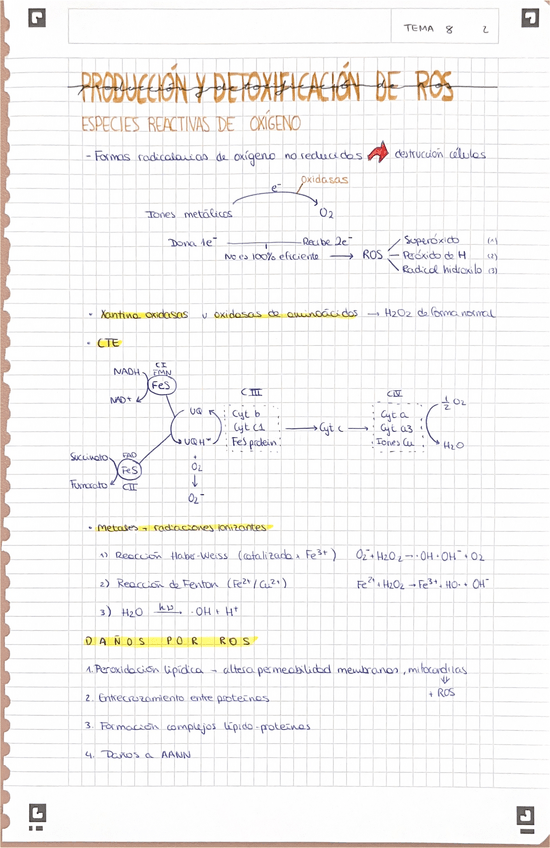 TEMA 8 2
PRODUCCIÓN Y DETOXIFICACIÓN DE ROS
Producción y detoxificación de Ros
ESPECIES REACTIVAS DE OXÍGENO
- Formas radicalarias de oxígeno no reducidas → destrucción células
oxidasas
e⁻
Iones metálicos O2
Dona 1e⁻ Recibe 2e⁻
No es 100% eficiente → ROS
Superóxido (1)
Peróxido de H (2)
Radical hidroxilo (3)
• Xantina oxidasas u oxidasas de aminoácidos → H2O2 de forma normal
• CTE
NADH CI FMN FeS
NAD+
UQ
UQH⁻
C III
Cyt b
Cyt C1
FeS protein
→ Cyt c →
CIV
Cyt a
Cyt a3
Iones Cu
½ O2
H2O
Succinato FAD FeS
Fumarato CII
+
O2
↓
O2⁻
• Metales - radiaciones ionizantes
1) Reacción Haber-Weiss (catalizada x Fe³⁺) O2⁻ + H2O2 → ·OH + OH⁻ + O2
2) Reacción de Fenton (Fe²⁺/Cu²⁺) Fe²⁺ + H2O2 → Fe³⁺ + HO· + OH⁻
3) H2O hν → ·OH + H⁺
DAÑOS POR ROS
1. Peroxidación lipídica - altera permeabilidad membranas, mitocondrias
⇓
+ ROS
2. Entrecruzamiento entre proteínas
3. Formación complejos lípido-proteínas
4. Daños a AANN